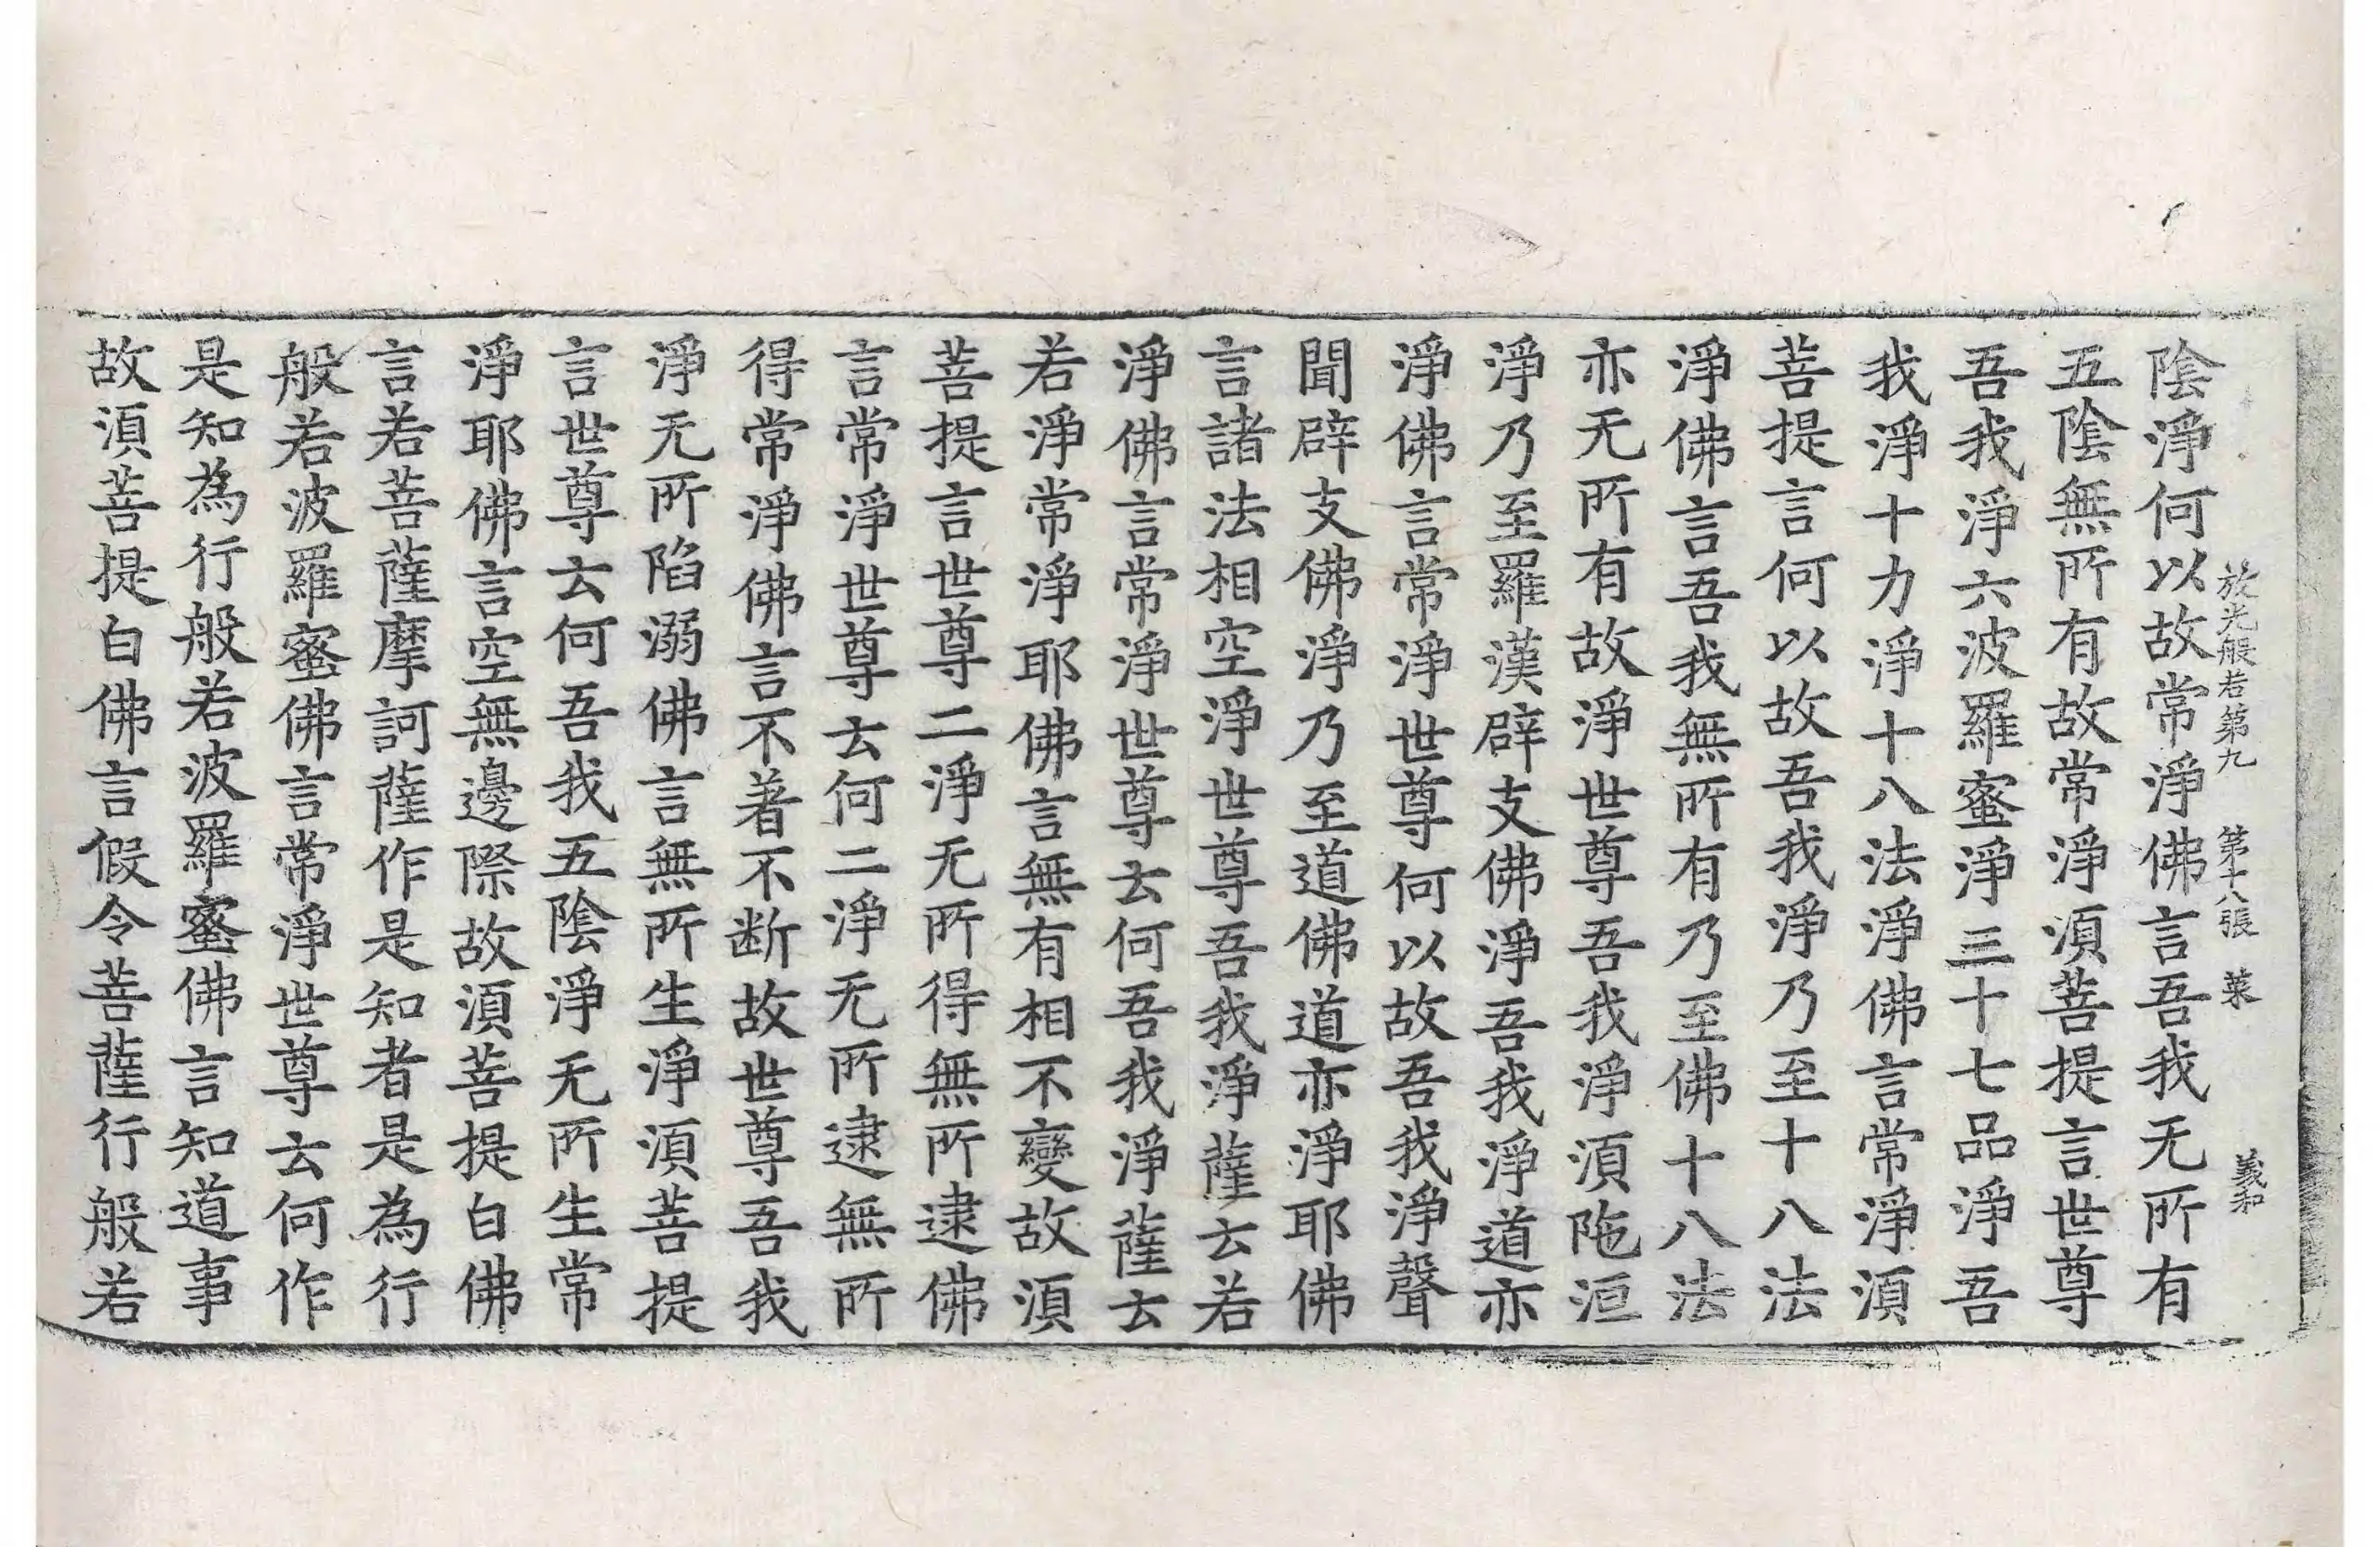 陰淨何以故常淨佛言吾我无所有
放光般若第九 第十八張 菜 義和
五陰無所有故常淨湏菩提言世尊
吾我淨六波羅蜜淨三十七品淨吾
我淨十力淨十八法淨佛言常淨湏
菩提言何以故吾我淨乃至十八法
淨佛言吾我無所有乃至佛十八法
亦无所有故淨世尊吾我淨湏陁洹
淨乃至羅漢辟支佛淨吾我淨道亦
淨佛言常淨世尊何以故吾我淨聲
聞辟支佛淨乃至道佛道亦淨耶佛
言諸法相空淨世尊吾我淨薩云若
淨佛言常淨世尊云何吾我淨薩云
若淨常淨耶佛言無有相不變故湏
菩提言世尊二淨无所得無所逮佛
言常淨世尊云何二淨无所逮無所
得常淨佛言不著不断故世尊吾我
淨无所陷溺佛言無所生淨湏菩提
言世尊云何吾我五陰淨无所生常
淨耶佛言空無邊際故湏菩提白佛
言若菩薩摩訶薩作是知者是為行
般若波羅蜜佛言常淨世尊云何作
是知為行般若波羅蜜佛言知道事
故湏菩提白佛言假令菩薩行般若